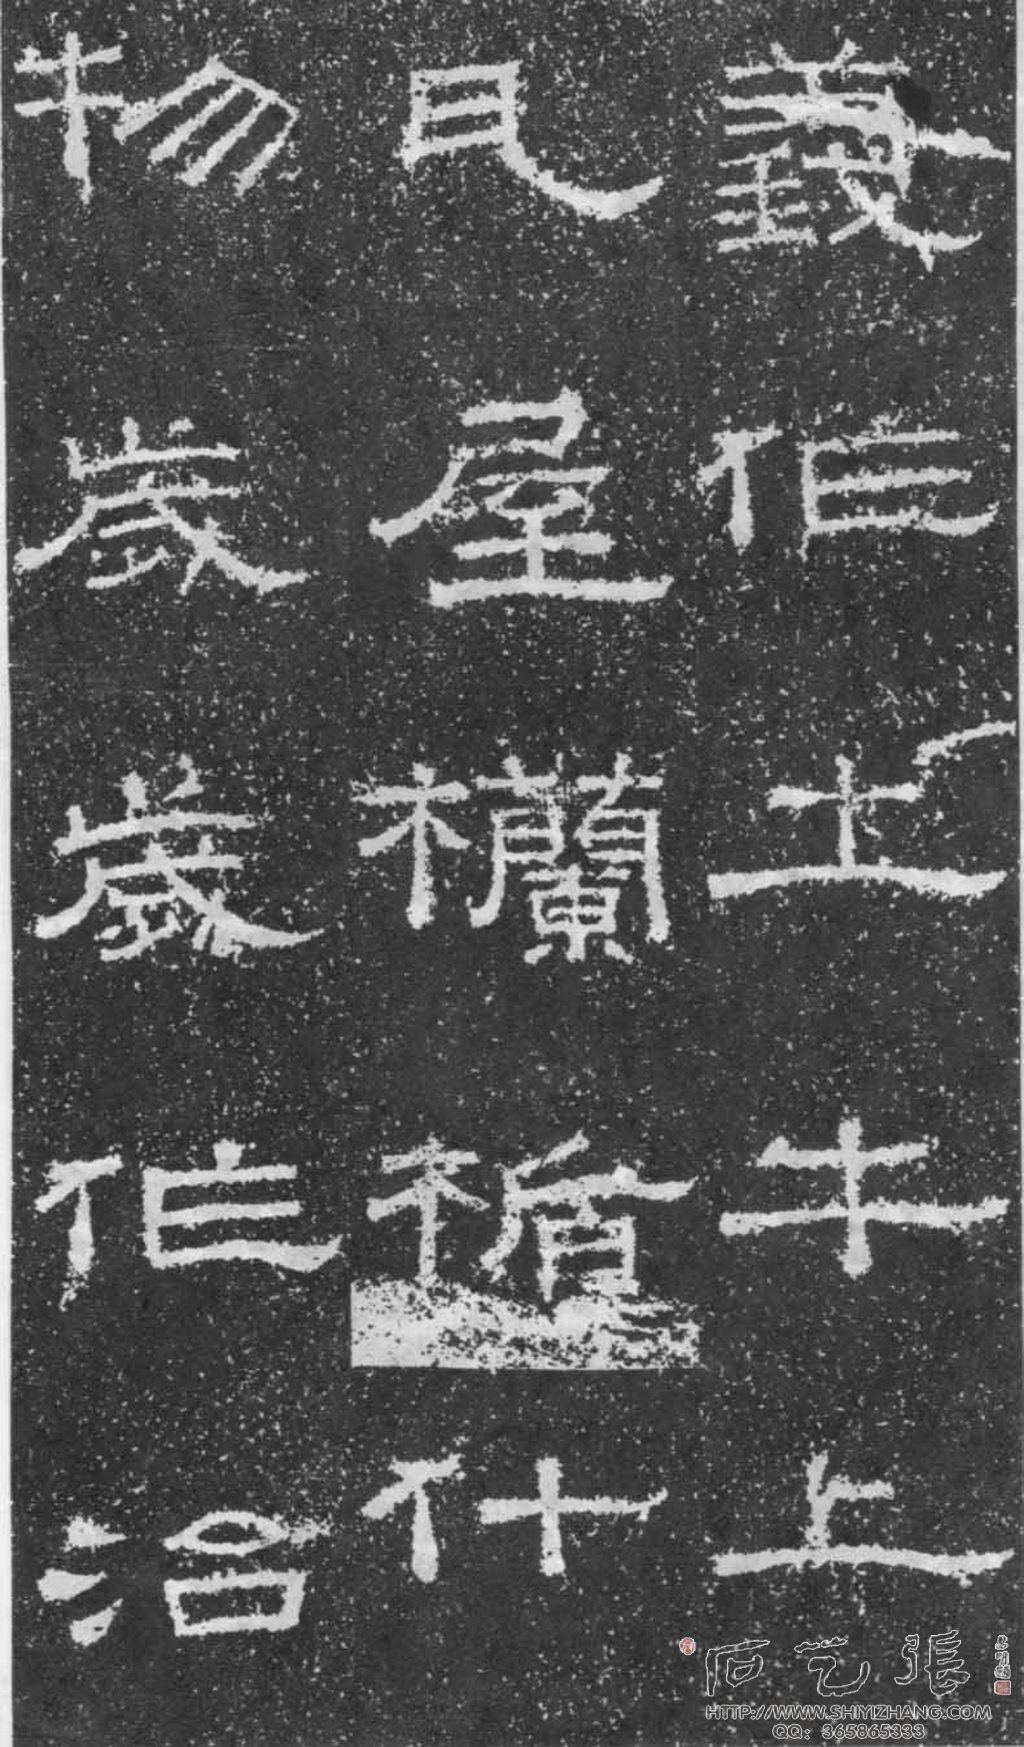 義作土牛上
瓦屋欄楯什
物歲歲作治
石艺張
HTTP://WWW.SHIYIZHANG.COM
QQ: 365865333